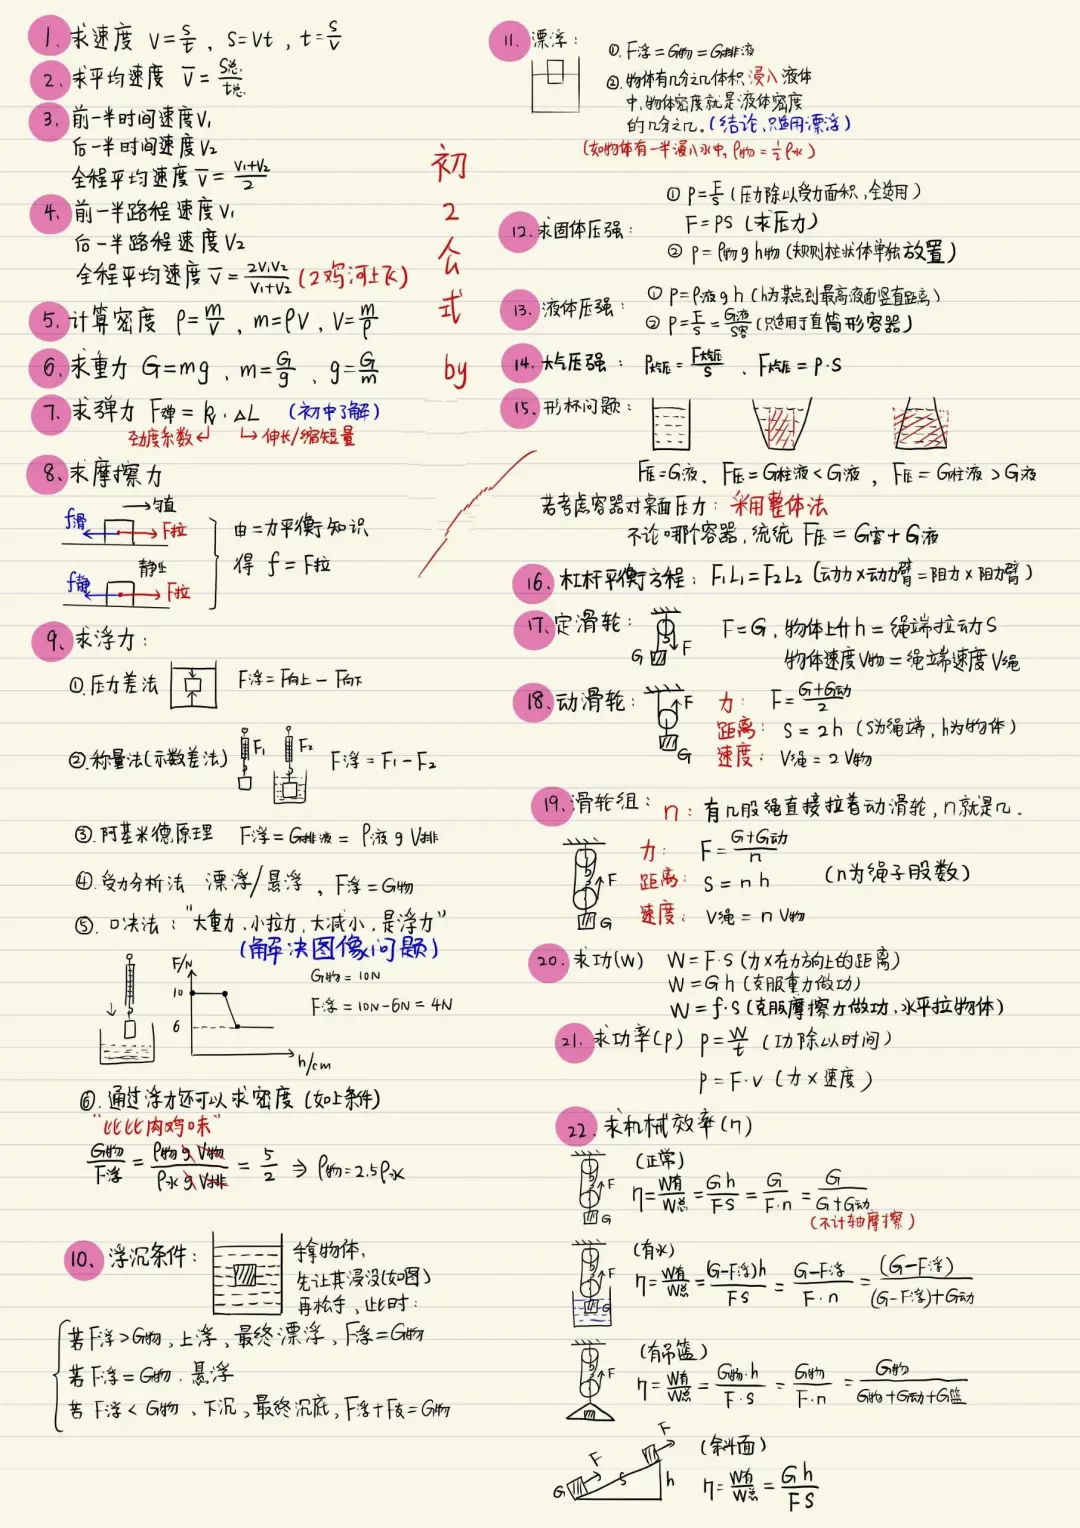 初2公式 by
1. 求速度 V=S/t , S=Vt , t=S/V
2. 求平均速度 V̄=S总/t总
3. 前一半时间速度V₁
后一半时间速度V₂
全程平均速度 V̄=(V₁+V₂)/2
4. 前一半路程速度V₁
后一半路程速度V₂
全程平均速度 V̄=2V₁V₂/(V₁+V₂) (2鸡河上飞)
5. 计算密度 ρ=m/V , m=ρV , V=m/ρ
6. 求重力 G=mg , m=G/g , g=G/m
7. 求弹力 F弹=k·△L (初中了解)
劲度系数 伸长/缩短量
8. 求摩擦力
匀直
f滑 F拉
静止
f静 F拉
由二力平衡知识
得 f=F拉
9. 求浮力:
①.压力差法 F浮=F向上-F向下
②.称量法(示数差法) F₁ F₂ F浮=F₁-F₂
③.阿基米德原理 F浮=G排液=ρ液gV排
④.受力分析法 漂浮/悬浮 , F浮=G物
⑤.口决法:"大重力,小拉力,大减小,是浮力"
(解决图像问题)
F/N
10
6
h/cm
G物=10N
F浮=10N-6N=4N
⑥.通过浮力还可以求密度 (如上条件)
"比比比肉鸡味"
G物/F浮=ρ物gV物/ρ水gV排=5/2 ⇒ ρ物=2.5ρ水
10、浮沉条件:
手拿物体,
先让其浸没(如图)
再松手,此时:
若F浮>G物、上浮、最终漂浮、F浮=G物
若F浮=G物、悬浮
若F浮<G物、下沉、最终沉底,F浮+F支=G物
11. 漂浮:
①.F浮=G物=G排液
②.物体有几分之几体积浸入液体
中,物体密度就是液体密度
的几分之几。(结论,只适用漂浮)
(如物体有一半浸入水中,ρ物=½ρ水)
12. 求固体压强:
① P=F/S (压力除以受力面积,全适用)
F=PS (求压力)
② P=ρ物gh物 (规则柱状体单独放置)
13. 液体压强:
① P=ρ液gh (h为某点到最高液面竖直距离)
② P=F/S=G液/S容 (只适用于直筒形容器)
14. 大气压强: P大气压=F大气压/S 、F大气压=P·S
15. 形杯问题:
F压=G液, F压=G柱液<G液 , F压=G柱液>G液
若考虑容器对桌面压力:采用整体法
不论哪个容器,统统 F压=G容+G液
16. 杠杆平衡方程:F₁L₁=F₂L₂ (动力×动力臂=阻力×阻力臂)
17. 定滑轮: G F F=G,物体上升h=绳端拉动S
物体速度V物=绳端速度V绳
18. 动滑轮: F G 力: F=(G+G动)/2
距离: S=2h (S为绳端,h为物体)
速度: V绳=2V物
19. 滑轮组: n:有几股绳直接拉着动滑轮,n就是几.
F G
力: F=(G+G动)/n
距离: S=nh (n为绳子股数)
速度: V绳=nV物
20. 求功(W) W=F·S (力×在力方向上的距离)
W=Gh (克服重力做功)
W=f·S (克服摩擦力做功,水平拉物体)
21. 求功率(P) P=W/t (功除以时间)
P=F·v (力×速度)
22. 求机械效率(η)
(正常)
F G η=W有/W总=Gh/FS=G/F·n=G/(G+G动)
(不计轴摩擦)
(有水)
F G η=W有/W总=(G-F浮)h/FS=(G-F浮)/F·n=(G-F浮)/((G-F浮)+G动)
(有吊篮)
F η=W有/W总=G物·h/F·S=G物/F·n=G物/(G物+G动+G篮)
(斜面)
G F S F h η=W有/W总=Gh/FS